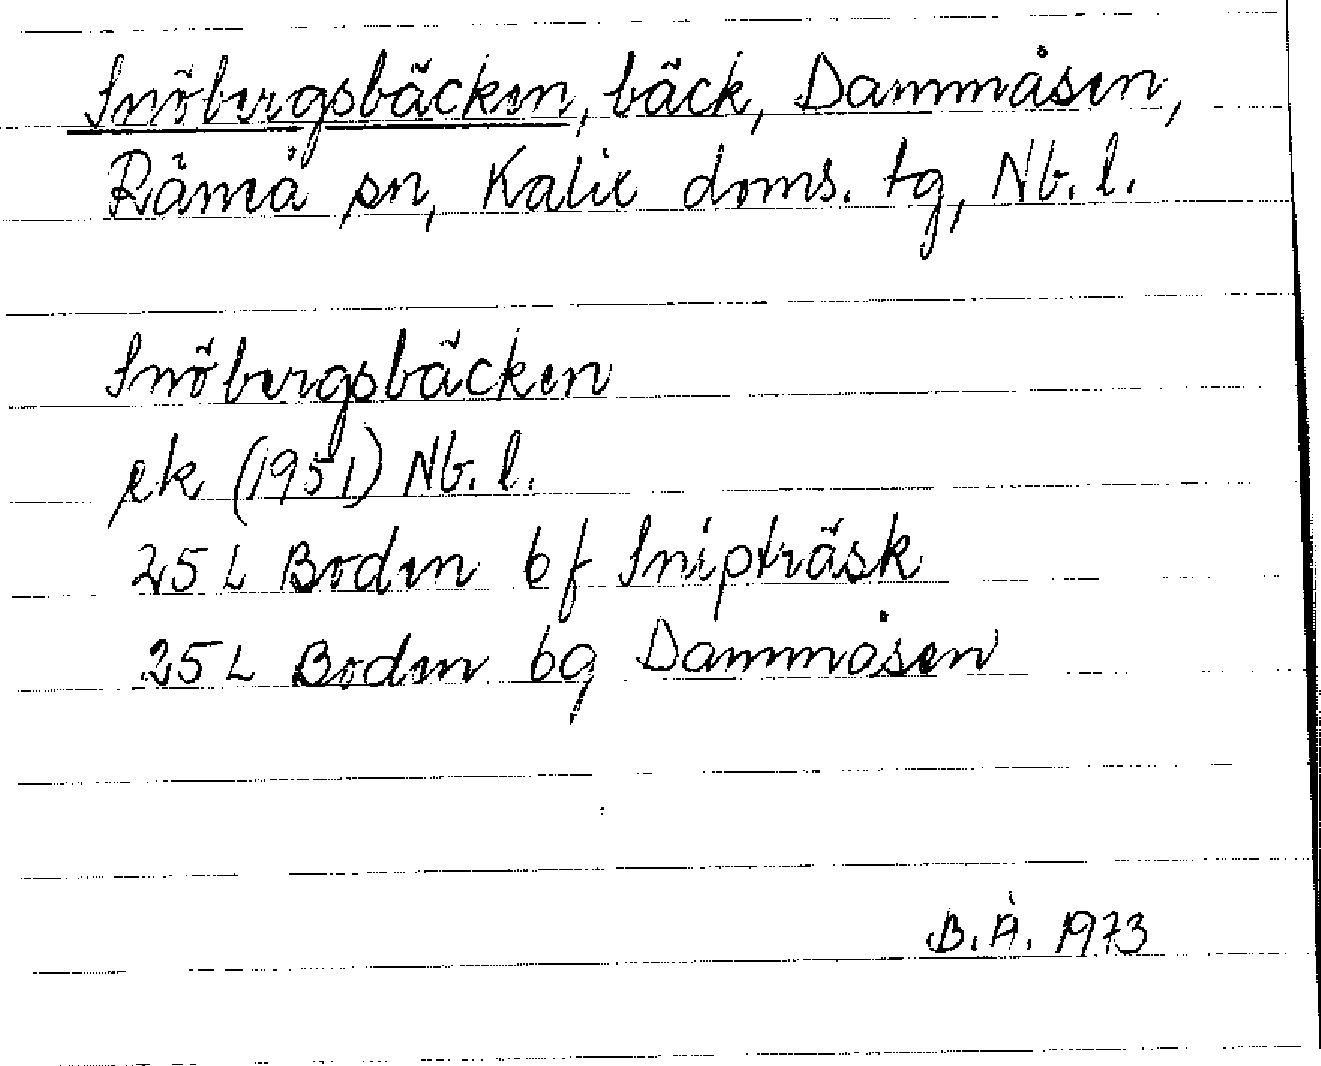 Snöbergsbäcken, bäck, Dammåsen,
Råneå sn, Kalix doms. tg, Nb. l.
Snöbergsbäcken
ek (1951) Nb. l.
25 L Boden 6f Snipträsk
25 L Boden 6g Dammåsen
B.Å. 1973